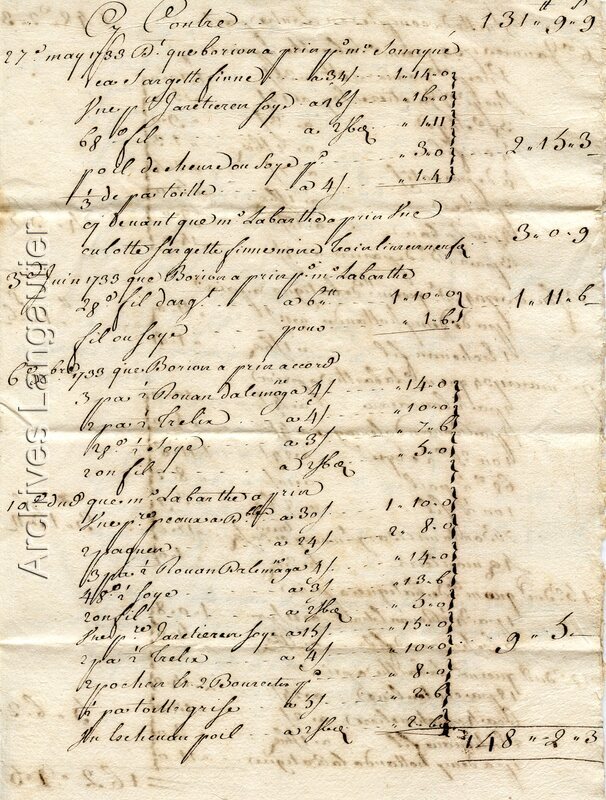 Cy Contre 131" 9s 9
27e may 1733 D. que borion a prin pr mr Sonagné
1 ca Sargette finne a 34s 1 " 14 " 0
Une pre Jaretier en soye a 16s " 16 " 0
68o fil a 2s " 1 " 11
poil de cheure ou soye pr " 3 " 0 2 " 15 " 3
1/3 de pa toille a 4s " 1 " 4
cj devant que mr Labarthe a prin Une
culotte sargette finne noire 3 " 0 " 9
3e Juin 1733 que Borion a prin pr mr Labarthe
28o fil d'argt a 6 1 " 10 " 0 1 " 11 " 6
fil ou soye pour " 1 " 6
6e bre 1733 que Borion a prin accord
3 pa Rouan dalemagne a 4s " 14 " 0
2 pa Trelix a 4s " 10 " 0
28o Soye a 3s " 7 " 6
2 on fil a 2s " 5 " 0
19e dud que mr Labarthe a prin
Une pre peaux a 30s 1 " 10 " 0
2 a 24s 2 " 8 " 0
3 pa Rouan Dalemagne a 4s " 14 " 0
48o Soye a 3s " 13 " 6
2 on fil a 2s " 5 " 0
Une pre Jaretier en soye a 15s " 15 " 0 9 " 5
2 pa Trelix a 4s " 10 " 0
2 pochen et 2 Bource pr " 8 " 0
pa toille grise a 5s " 2 " 6
Un Escheuau poil a 2s " 2 " 6
148 " 2 " 3
Archives Langautier